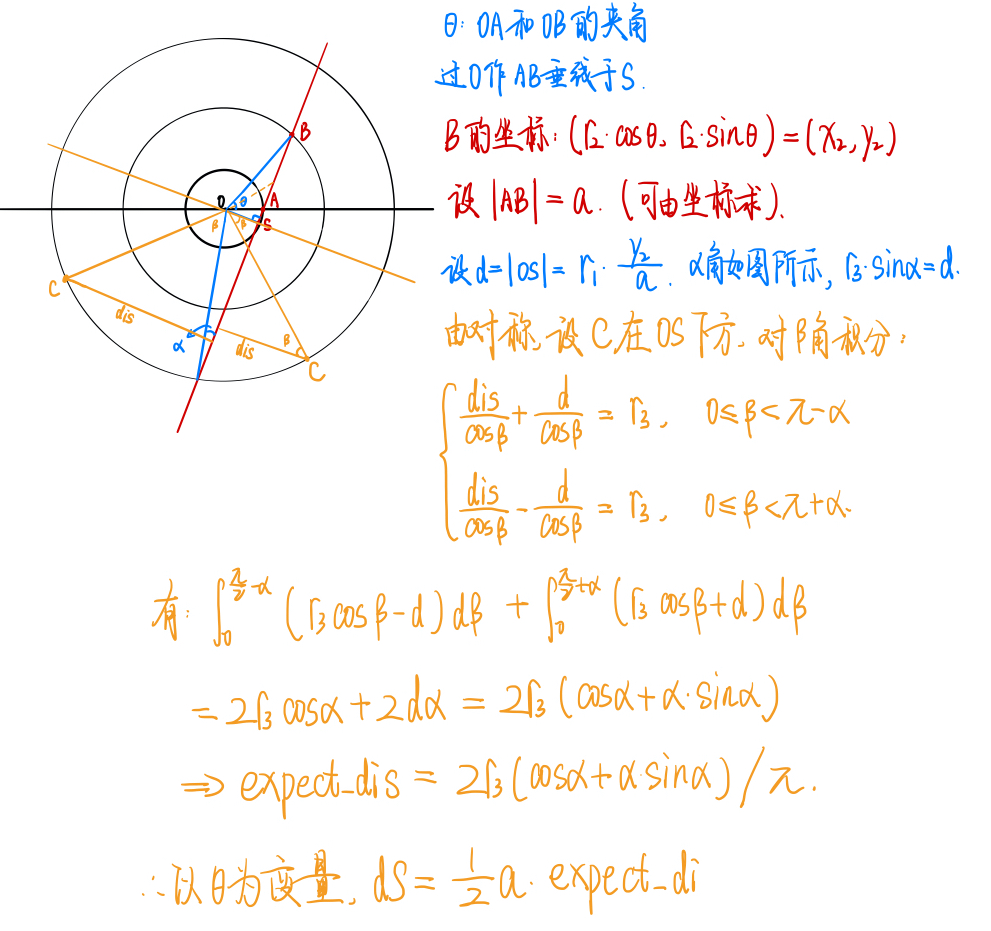 θ: OA和OB的夹角
过O作AB垂线于S.
B的坐标: (r₂·cosθ, r₂·sinθ)=(x₂,y₂)
设|AB|=a. (可由坐标求).
设d=|OS|=r₁·y₂/a. α角如图所示, r₃·sinα=d.
由对称,设C在OS下方,对β角积分:
dis/cosβ + d/cosβ = r₃, 0≤β<π-α
dis/cosβ - d/cosβ = r₃, 0≤β<π+α.
有: ∫₀^(π/2-α) (r₃cosβ-d)dβ + ∫₀^(π/2+α) (r₃cosβ+d)dβ
=2r₃cosα+2dα=2r₃(cosα+α·sinα)
⇒ expect_dis=2r₃(cosα+α·sinα)/π.
∴以θ为变量, dS=1/2 a·expect_di
B
O
θ
A
S
β
β
C
dis
α
dis
β
C